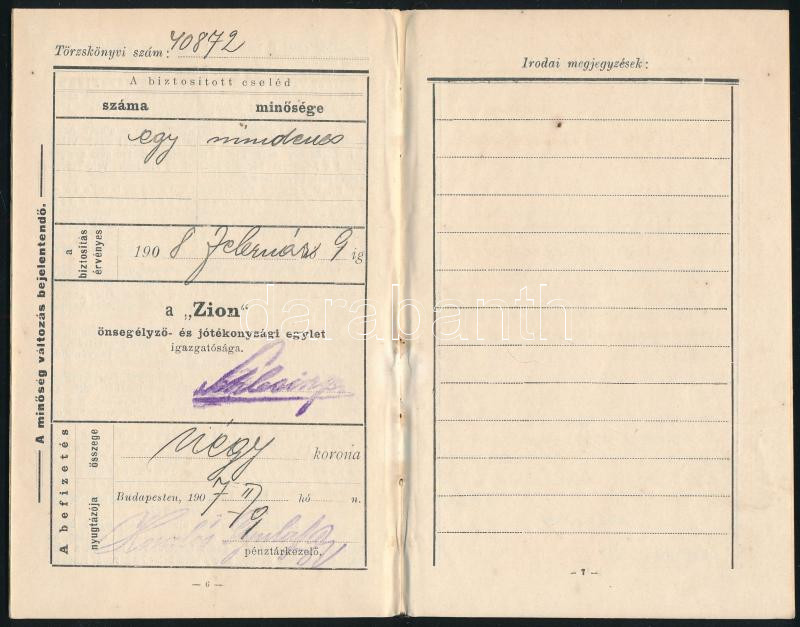 Törzskönyvi szám: 40872
A biztositott cseléd
száma minősége
egy mindenes
a biztosítás érvényes
1908 Február 9 ig
a „Zion"
önsegélyző- és jótékonysági egylet
igazgatósága.
A befizetés
összege
négy korona
nyugtázója
Budapesten, 1907 II/9 hó n.
pénztárkezelő.
A minőség változás bejelentendő.
— 6 —
Irodai megjegyzések:
— 7 —
darabanth